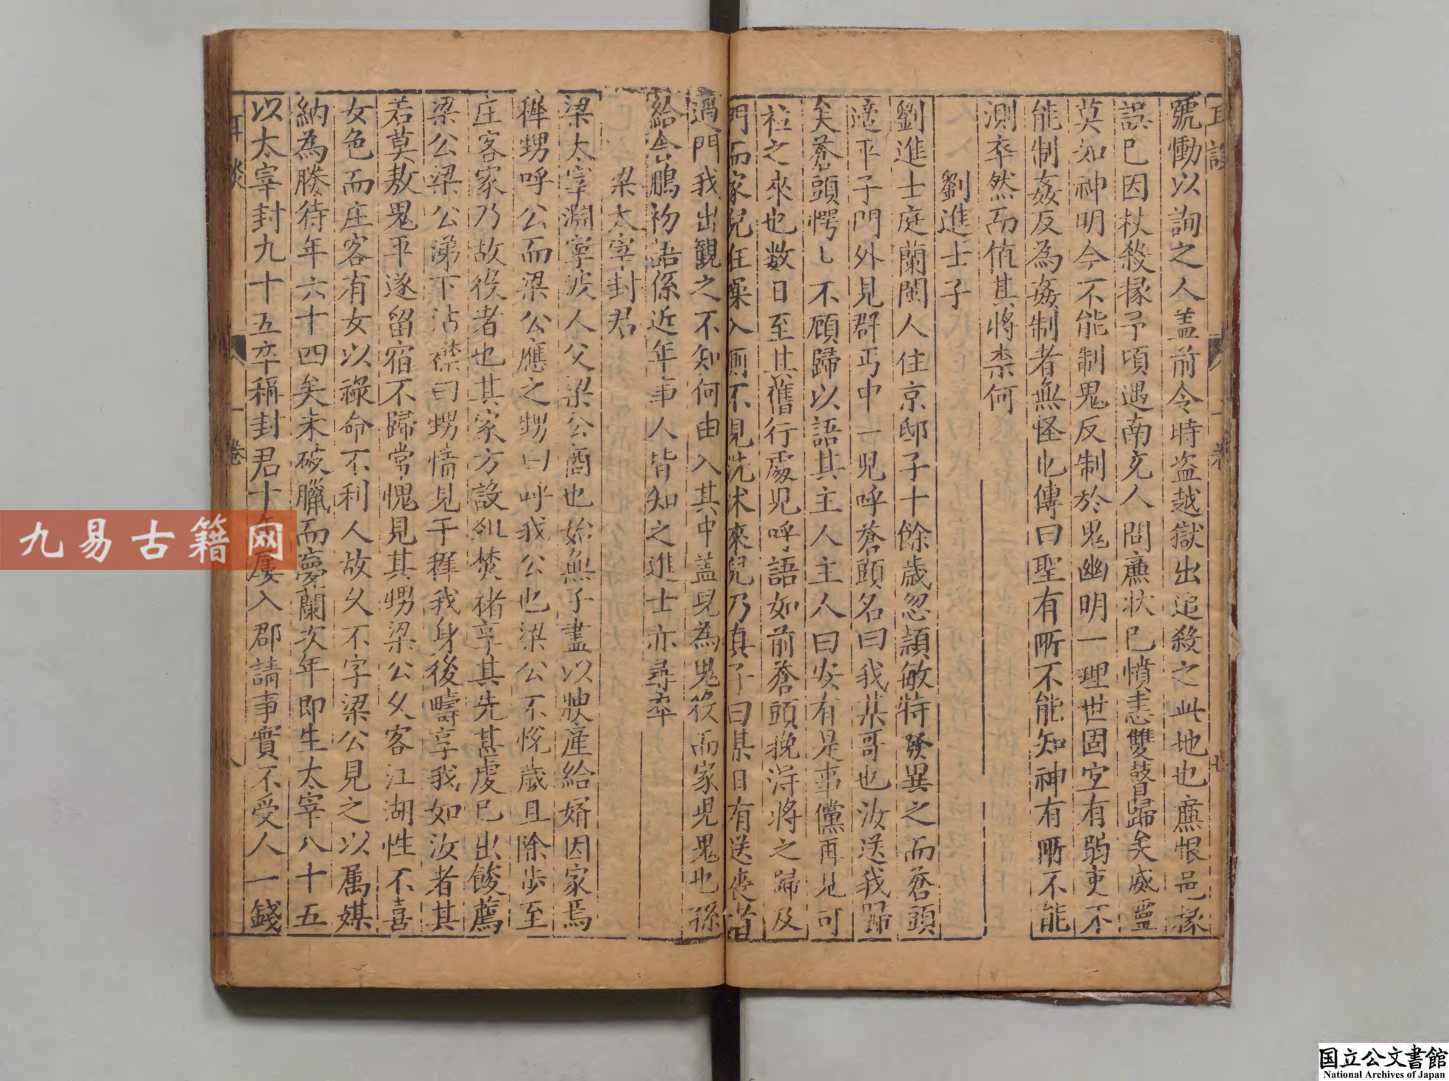 號慟以詢之人蓋前令時盗越獄出追殺之此地也廡恨邑掾
誤已因杖殺掾予頃遇南充人問廡狀已憤恚雙瞽歸矣威靈
莫如神明今不能制鬼反制於鬼幽明一理世固宜有弱吏不
能制姦反為姦制者無怪也傳曰聖有所不能知神有所不能
測卒然而值其將柰何
劉進士子
劉進士庭蘭閩人住京邸子十餘歲忽頴敏特發異之而蒼頭
適平子門外見群丐中一兒呼蒼頭名曰我某哥也汝送我歸
矣蒼頭愕〻不顧歸以語其主人主人曰安有是事儻再見可
拉之來也数日至其舊行處児呼語如前蒼頭挽淂將之歸及
門而家兒在㬠入厠不見洗沐來兒乃真子曰某日有送喪者
過門我出觀之不知何由入其中蓋兒為鬼役而家児鬼也孫
給舍鵬初語係近年事人皆知之進士亦尋卒
梁太宰封君
梁太宰淵寧波人父梁公商也始無子盡以腴産給婿因家焉
穉甥呼公而梁公應之甥曰呼我公也梁公不悅歲且除步至
庄客家乃故役者也其家方設祀焚褚享其先甚虔已出餕薦
梁公梁公涕下沾襟曰甥情見于穉我身後疇享我如汝者其
若莫敖鬼乎遂留宿不歸常愧見其甥梁公久客江湖性不喜
女色而庄客有女以祿命不利人故久不字梁公見之以属媒
納為勝待年六十四矣未破臘而夢蘭次年即生太宰八十五
以太宰封九十五卒稱封君十年屢入郡請事實不受人一錢
耳談
一卷
八
九易古籍网
国立公文書館
National Archives of Japan